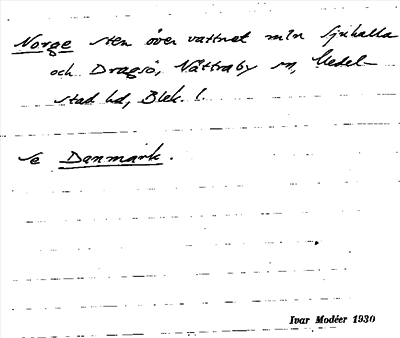 Norge sten över vattnet mln Sjuhalla
och Dragsö, Nättraby sn, Medel-
stad hd, Blek. l.
Se Danmark.
Ivar Modéer 1930